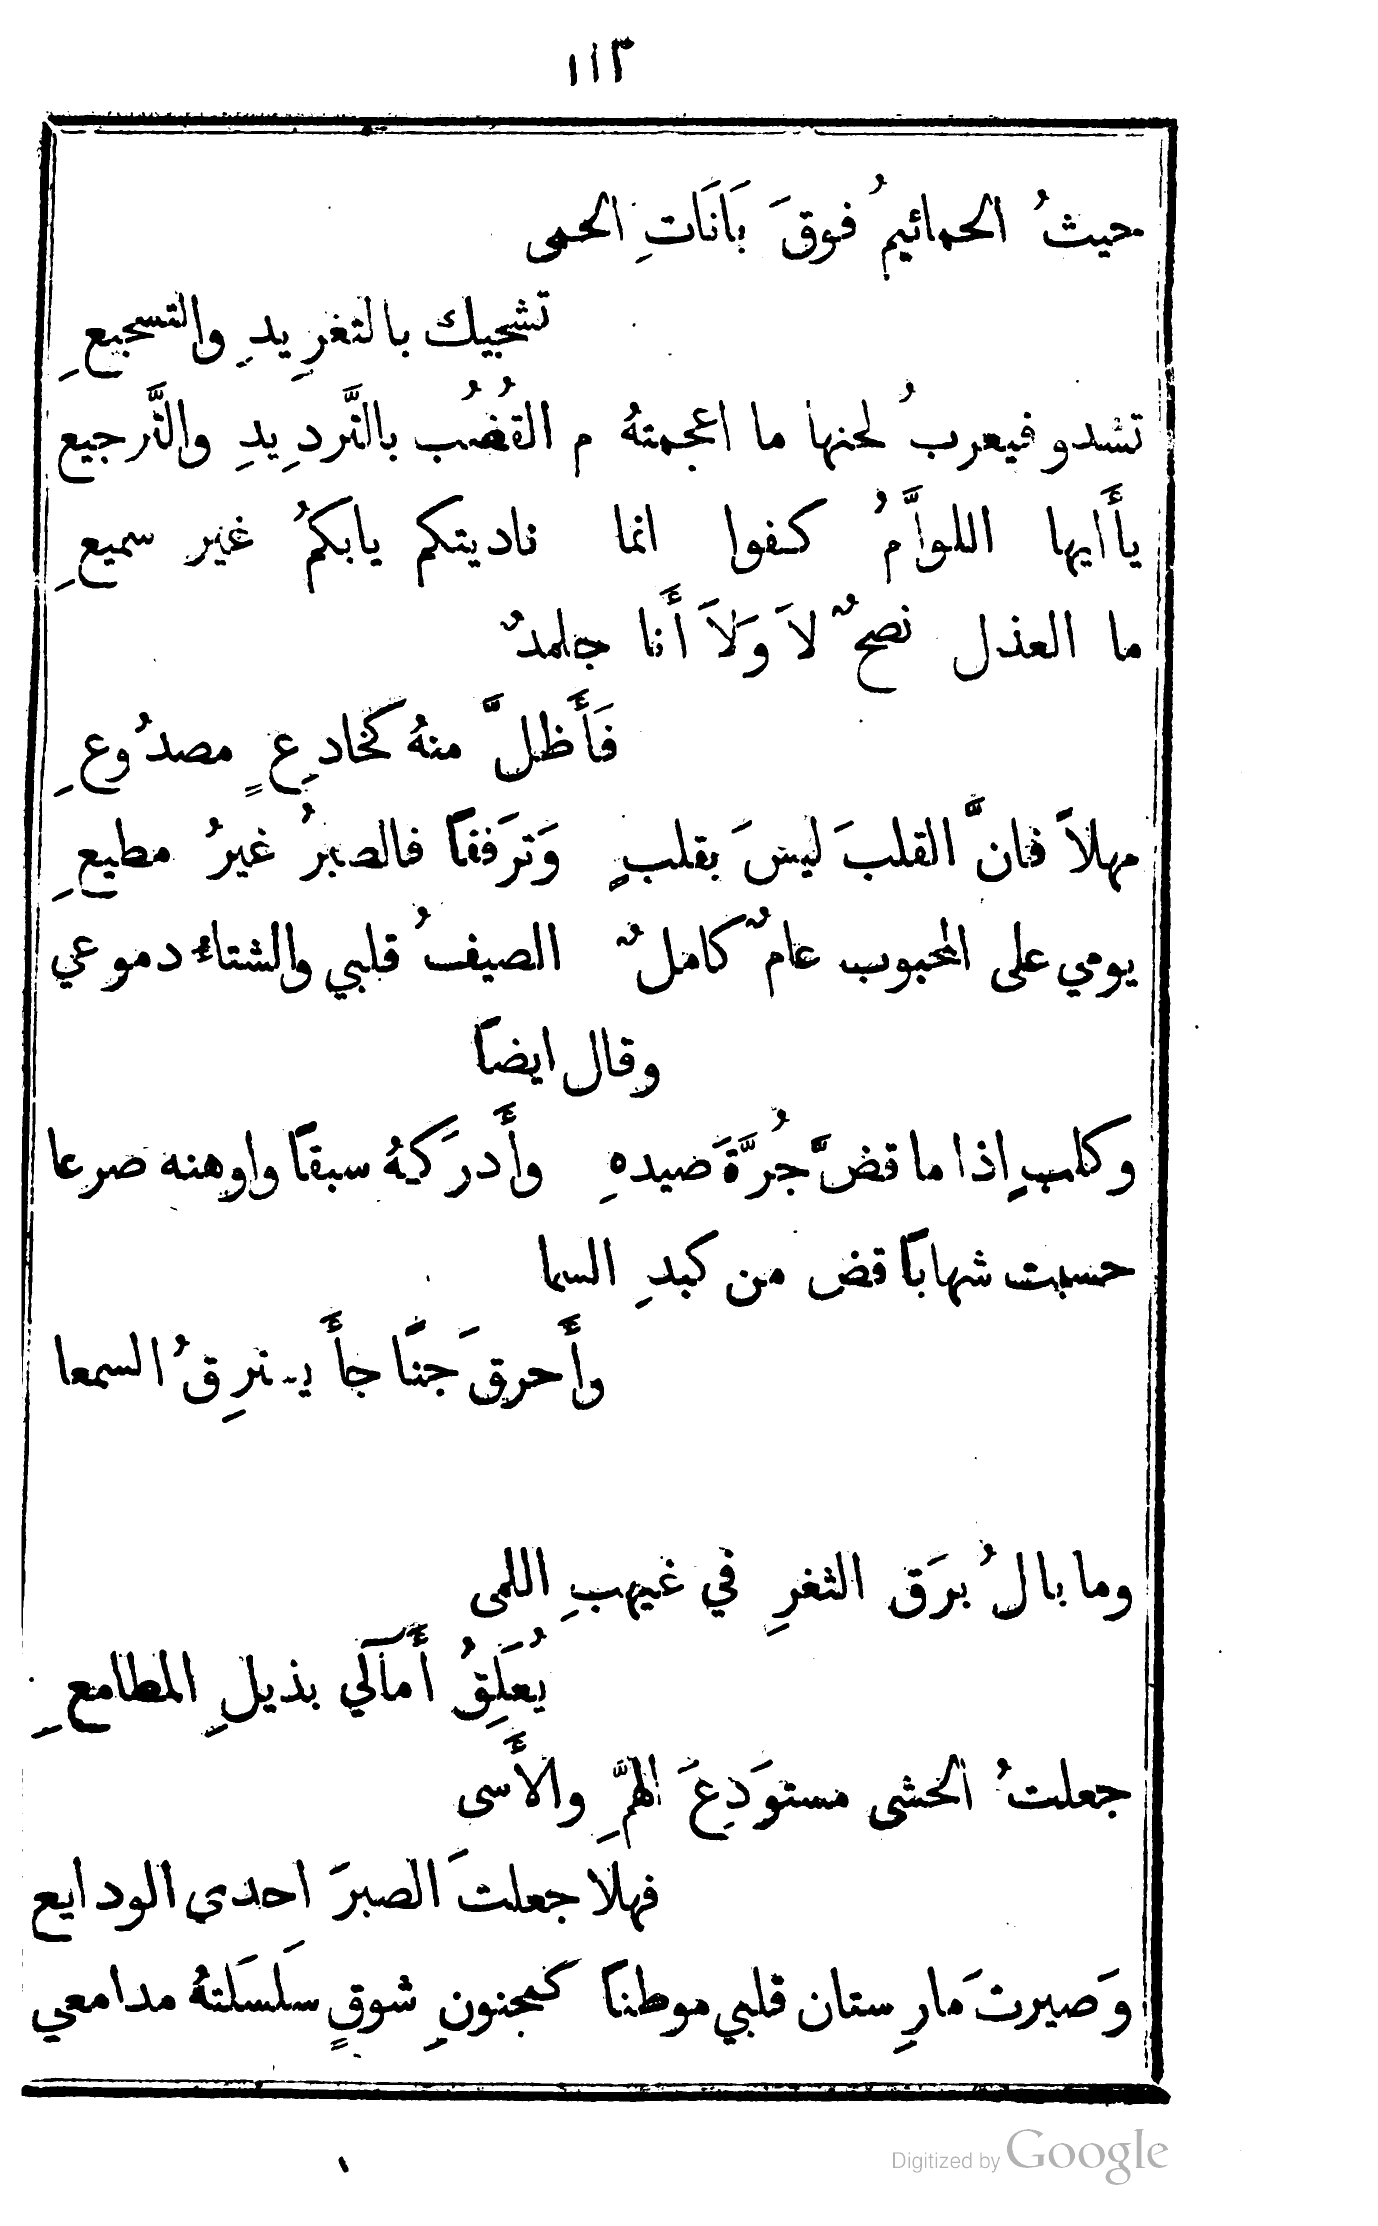 ١١٣
حيثُ الحمائيمُ فوقَ بَانَاتِ الحمى
تشجيك بالتغرِيدِ والتسجيعِ
تشدو فيعربُ لحنها ما اعجمتهُ م القُضُب بالتَّردِيدِ والتَّرجيع
يأَايها اللوَّامُ كفوا انما ناديتكم يابكمُ غير سميعِ
ما العذل نصحٌ لاَ وَلاَ أَنا جلمدٌ
فَأَظلَّ منهُ كخادِعٍ مصدُوعِ
مهلاً فانَّ القلبَ ليسَ بقلبٍ وَترَفقاً فالصبرُ غيرُ مطيعِ
يومي على المحبوب عامٌ كاملٌ الصيفُ قلبي والشتاءُ دموعي
وقال ايضاً
وكلبٍ اذا ما قضَّ جُرَّةَ صيدهِ وأَدرَكهُ سبقاً واوهنه صرعا
حسبت شهاباً قض من كبدِ السما
وأَحرقَ جنًا جأَ يـنرِقُ السمعا
وما بالُ برَق الثغرِ في غيهبِ اللمى
يُعَلِقُ أَمآلي بذيلِ المطامعِ
جعلتُ الحشى مستوَدِعَ الهمَِّ والأَسى
فهلا جعلتَ الصبرَ احدي الودايع
وَصيرت مَارِستان قلبي موطناً كمجنونِ شوقٍ سَلسَلتهُ مدامعي
١
Digitized by Google